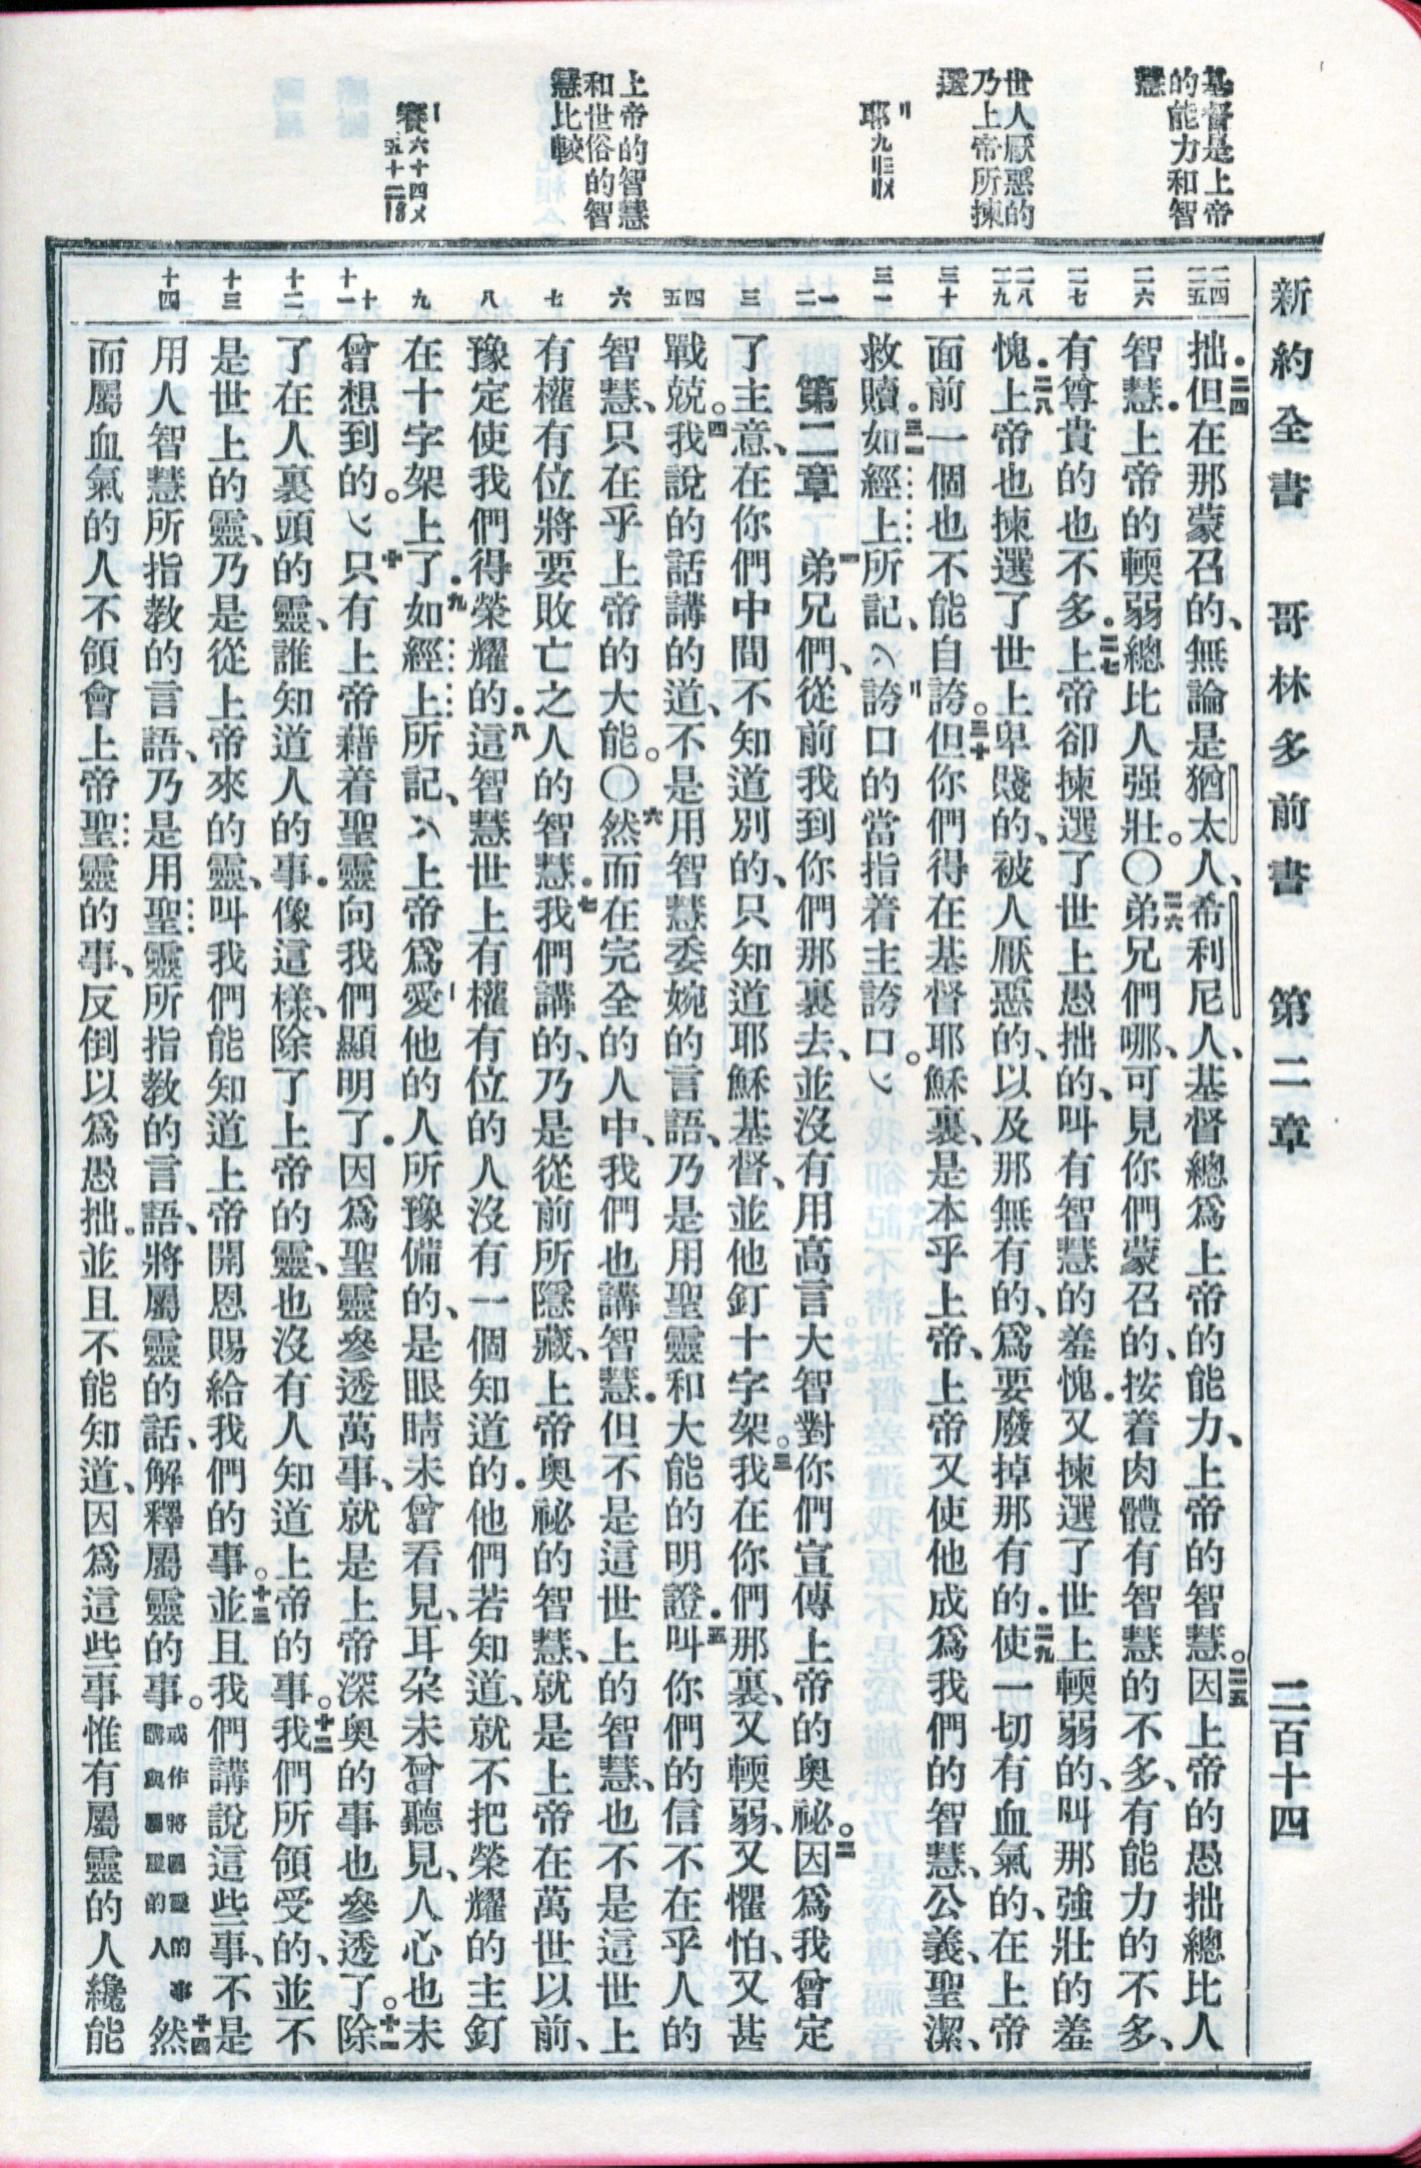 新約全書 哥林多前書 第二章 二百十四
基督是上帝
的能力和智
慧
世人厭惡的
乃上帝所揀
選
耶九
上帝的智慧
和世俗的智
慧比較
六十四
二四
二五
二六
二七
二八
二九
三十
三一
一
二
三
四
五
六
七
八
九
十
十一
十二
十三
十四
拙但在那蒙召的、無論是猶太人、希利尼人、基督總爲上帝的能力、上帝的智慧。二五因上帝的愚拙總比人
智慧．上帝的輭弱總比人强壯。〇二六弟兄們哪、可見你們蒙召的、按着肉體有智慧的不多、有能力的不多、
有尊貴的也不多．二七上帝卻揀選了世上愚拙的、叫有智慧的羞愧．又揀選了世上輭弱的、叫那強壯的羞
愧．二八上帝也揀選了世上卑賤的、被人厭惡的、以及那無有的、爲要廢掉那有的．二九使一切有血氣的、在上帝
面前一個也不能自誇。三十但你們得在基督耶穌裏、是本乎上帝、上帝又使他成爲我們的智慧、公義、聖潔、
救贖．三一如經上所記、誇口的當指着主誇口。
第二章 一弟兄們、從前我到你們那裏去、並沒有用高言大智對你們宣傳上帝的奧祕。二因爲我曾定
了主意、在你們中間不知道別的、只知道耶穌基督、並他釘十字架。三我在你們那裏、又輭弱、又懼怕、又甚
戰兢。四我說的話講的道、不是用智慧委婉的言語、乃是用聖靈和大能的明證．五叫你們的信不在乎人的
智慧、只在乎上帝的大能。〇六然而在完全的人中、我們也講智慧．但不是這世上的智慧、也不是這世上
有權有位將要敗亡之人的智慧．七我們講的、乃是從前所隱藏、上帝奧祕的智慧、就是上帝在萬世以前、
豫定使我們得榮耀的．八這智慧世上有權有位的人沒有一個知道的．他們若知道、就不把榮耀的主釘
在十字架上了．九如經上所記、上帝爲愛他的人所豫備的、是眼睛未曾看見、耳朵未曾聽見、人心也未
曾想到的。十只有上帝藉着聖靈向我們顯明了．因爲聖靈參透萬事、就是上帝深奧的事也參透了。十一除
了在人裏頭的靈、誰知道人的事．像這樣、除了上帝的靈、也沒有人知道上帝的事。十二我們所領受的、並不
是世上的靈、乃是從上帝來的靈、叫我們能知道上帝開恩賜給我們的事。十三並且我們講說這些事、不是
用人智慧所指教的言語、乃是用聖靈所指教的言語、將屬靈的話、解釋屬靈的事。或作將屬靈的事講與屬靈的人十四然
而屬血氣的人不領會上帝聖靈的事、反倒以爲愚拙。並且不能知道、因爲這些事惟有屬靈的人纔能